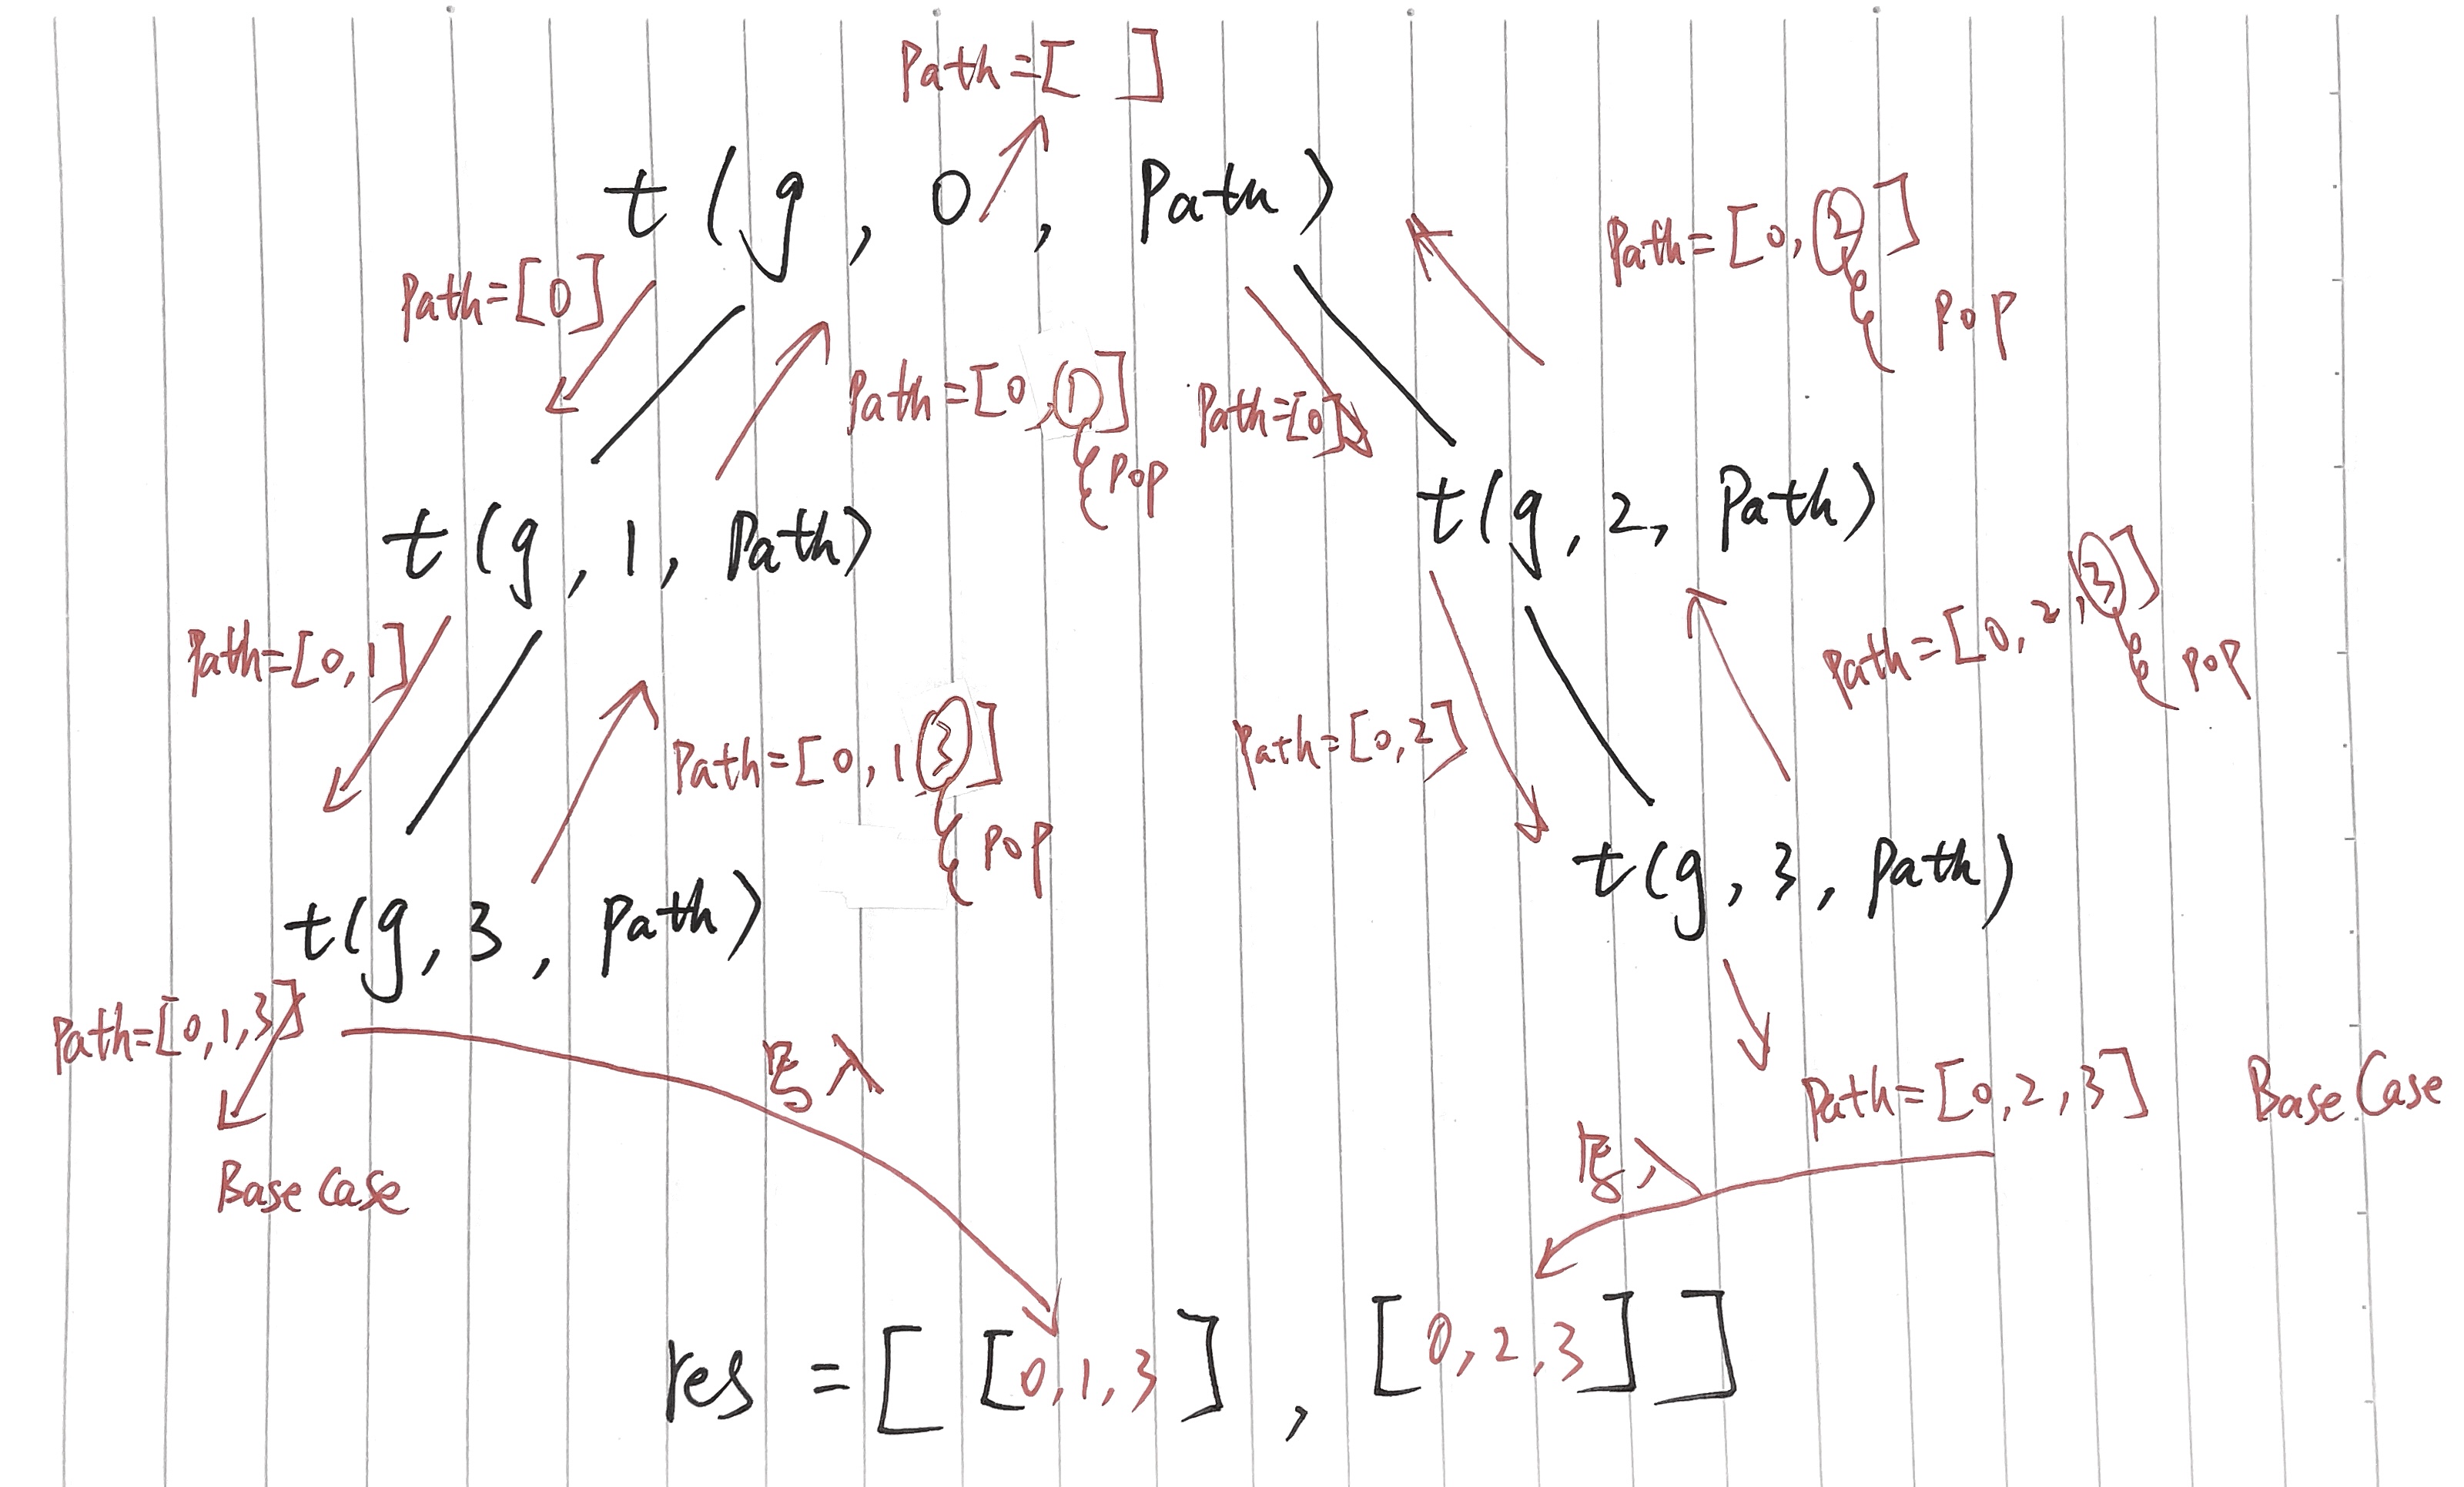 Path=[ ]
t(g, 0, Path)
Path=[0]
Path=[0,1]
Pop
Path=[0]
Path=[0,2]
Pop
t(g, 1, Path)
t(g, 2, Path)
Path=[0,1]
Path=[0,1 3]
Pop
Path=[0,2]
Path=[0,2,3]
Pop
t(g, 3, Path)
t(g, 3, Path)
Path=[0,1,3]
Base Case
Path=[0,2,3]
Base Case
res = [ [0,1,3] , [0,2,3] ]